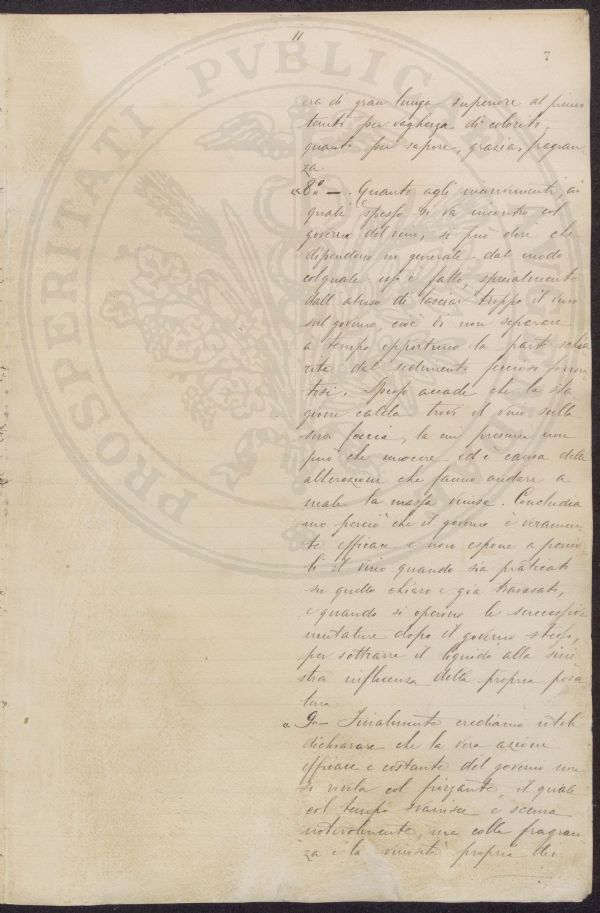 11
7
PROSPERITATI PVBLICAE
era di gran lunga superiore al primo
tanto per vaghezza di colorito,
quanto per sapore, grazia, fragran-
za.
"8º — . Quanto agli inconvenienti ai
quali spesso si va incontro col
governo del vino, si può dire che
dipendono in generale dal modo
col quale esso è fatto, specialmente
dall'abuso di lasciar troppo il vino
sul governo, cioè di non separare
a tempo opportuno la parte schia
rita dal sedimento feccioso forma
tosi. Spesso accade che la sta
gione calda trovi il vino sulla
sua feccia, la cui presenza non
può che nuocere ed è causa delle
alterazioni che fanno andare a
male la massa vinosa. Concludia
mo perciò che il governo è veramen
te efficace e non espone a perico
li il vino quando sia praticato
su quello chiaro e già travasato,
e quando si operino le successive
mutature dopo il governo stesso,
per sottrarre il liquido alla sini
stra influenza della propria posa
tura.
"9º — Finalmente crediamo utile
dichiarare che la vera azione
efficace e costante del governo non
si rivela col frizzante, il quale
col tempo svanisce e scema
notevolmente, ma colla fragran
za e la vinosità propria dei